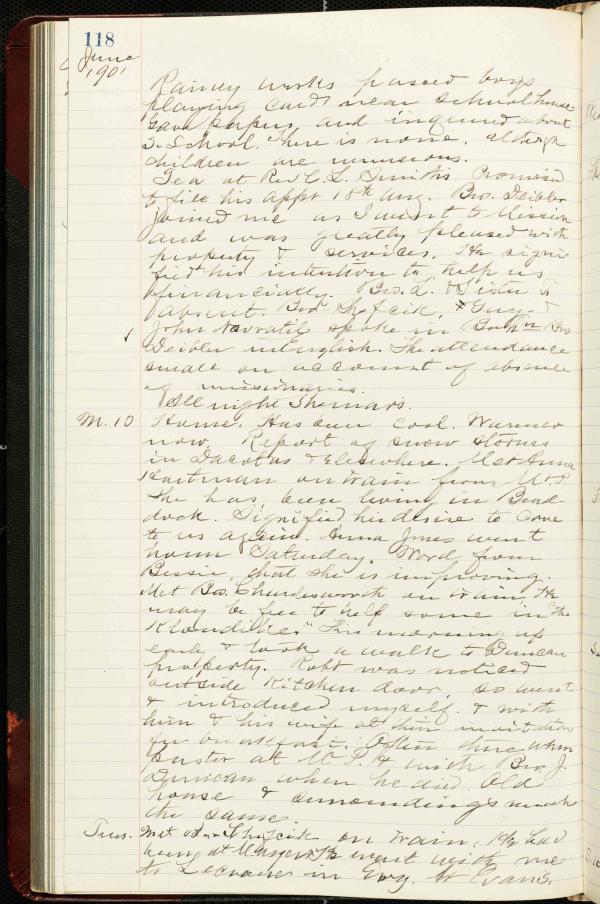 118
June
1901
Rainey works passed boys
playing cards near schoolhouse
Gave papers and inquired about
S. School. There is none, although
children are numerous.
Tea at Rev. C. L. Smith's. Promised
to fill his appt 18th Aug. Bro. Deibler
joined me as I went to Mission
and was greatly pleased with
property & services. He signi-
fied his intention to help us
financially. Bro. L. & Sister
absent. Bro. Shafcik, & Guy
John Navratil spoke in Boh'n Bro
Deibler in English. The attendance
small on account of absence
of missionaries.
All night
M. 10 Home. Has been cool. Warmer
now. Report of snow storms
in Dacotas & Elsewhere. Met Anna
Hartman on train from
She has been living in Brad-
dock. Signified her desire to come
to us again. Anna Jones went
home Saturday. Word from
Bessie, that she is improving.
Met Bro. on train. He
may be free to help some in "the
Klondike." This morning up
early & took a walk to Duncan
property. Robt was noticed
outside kitchen door, so went
& introduced myself. & with
him & his wife at their invitation
for breakfast. Often there when
pastor at & with Bro. J.
Duncan when he died. Old
house & surroundings much
the same.
Tues. Met on train. He had
been at went with me
to in Evans.